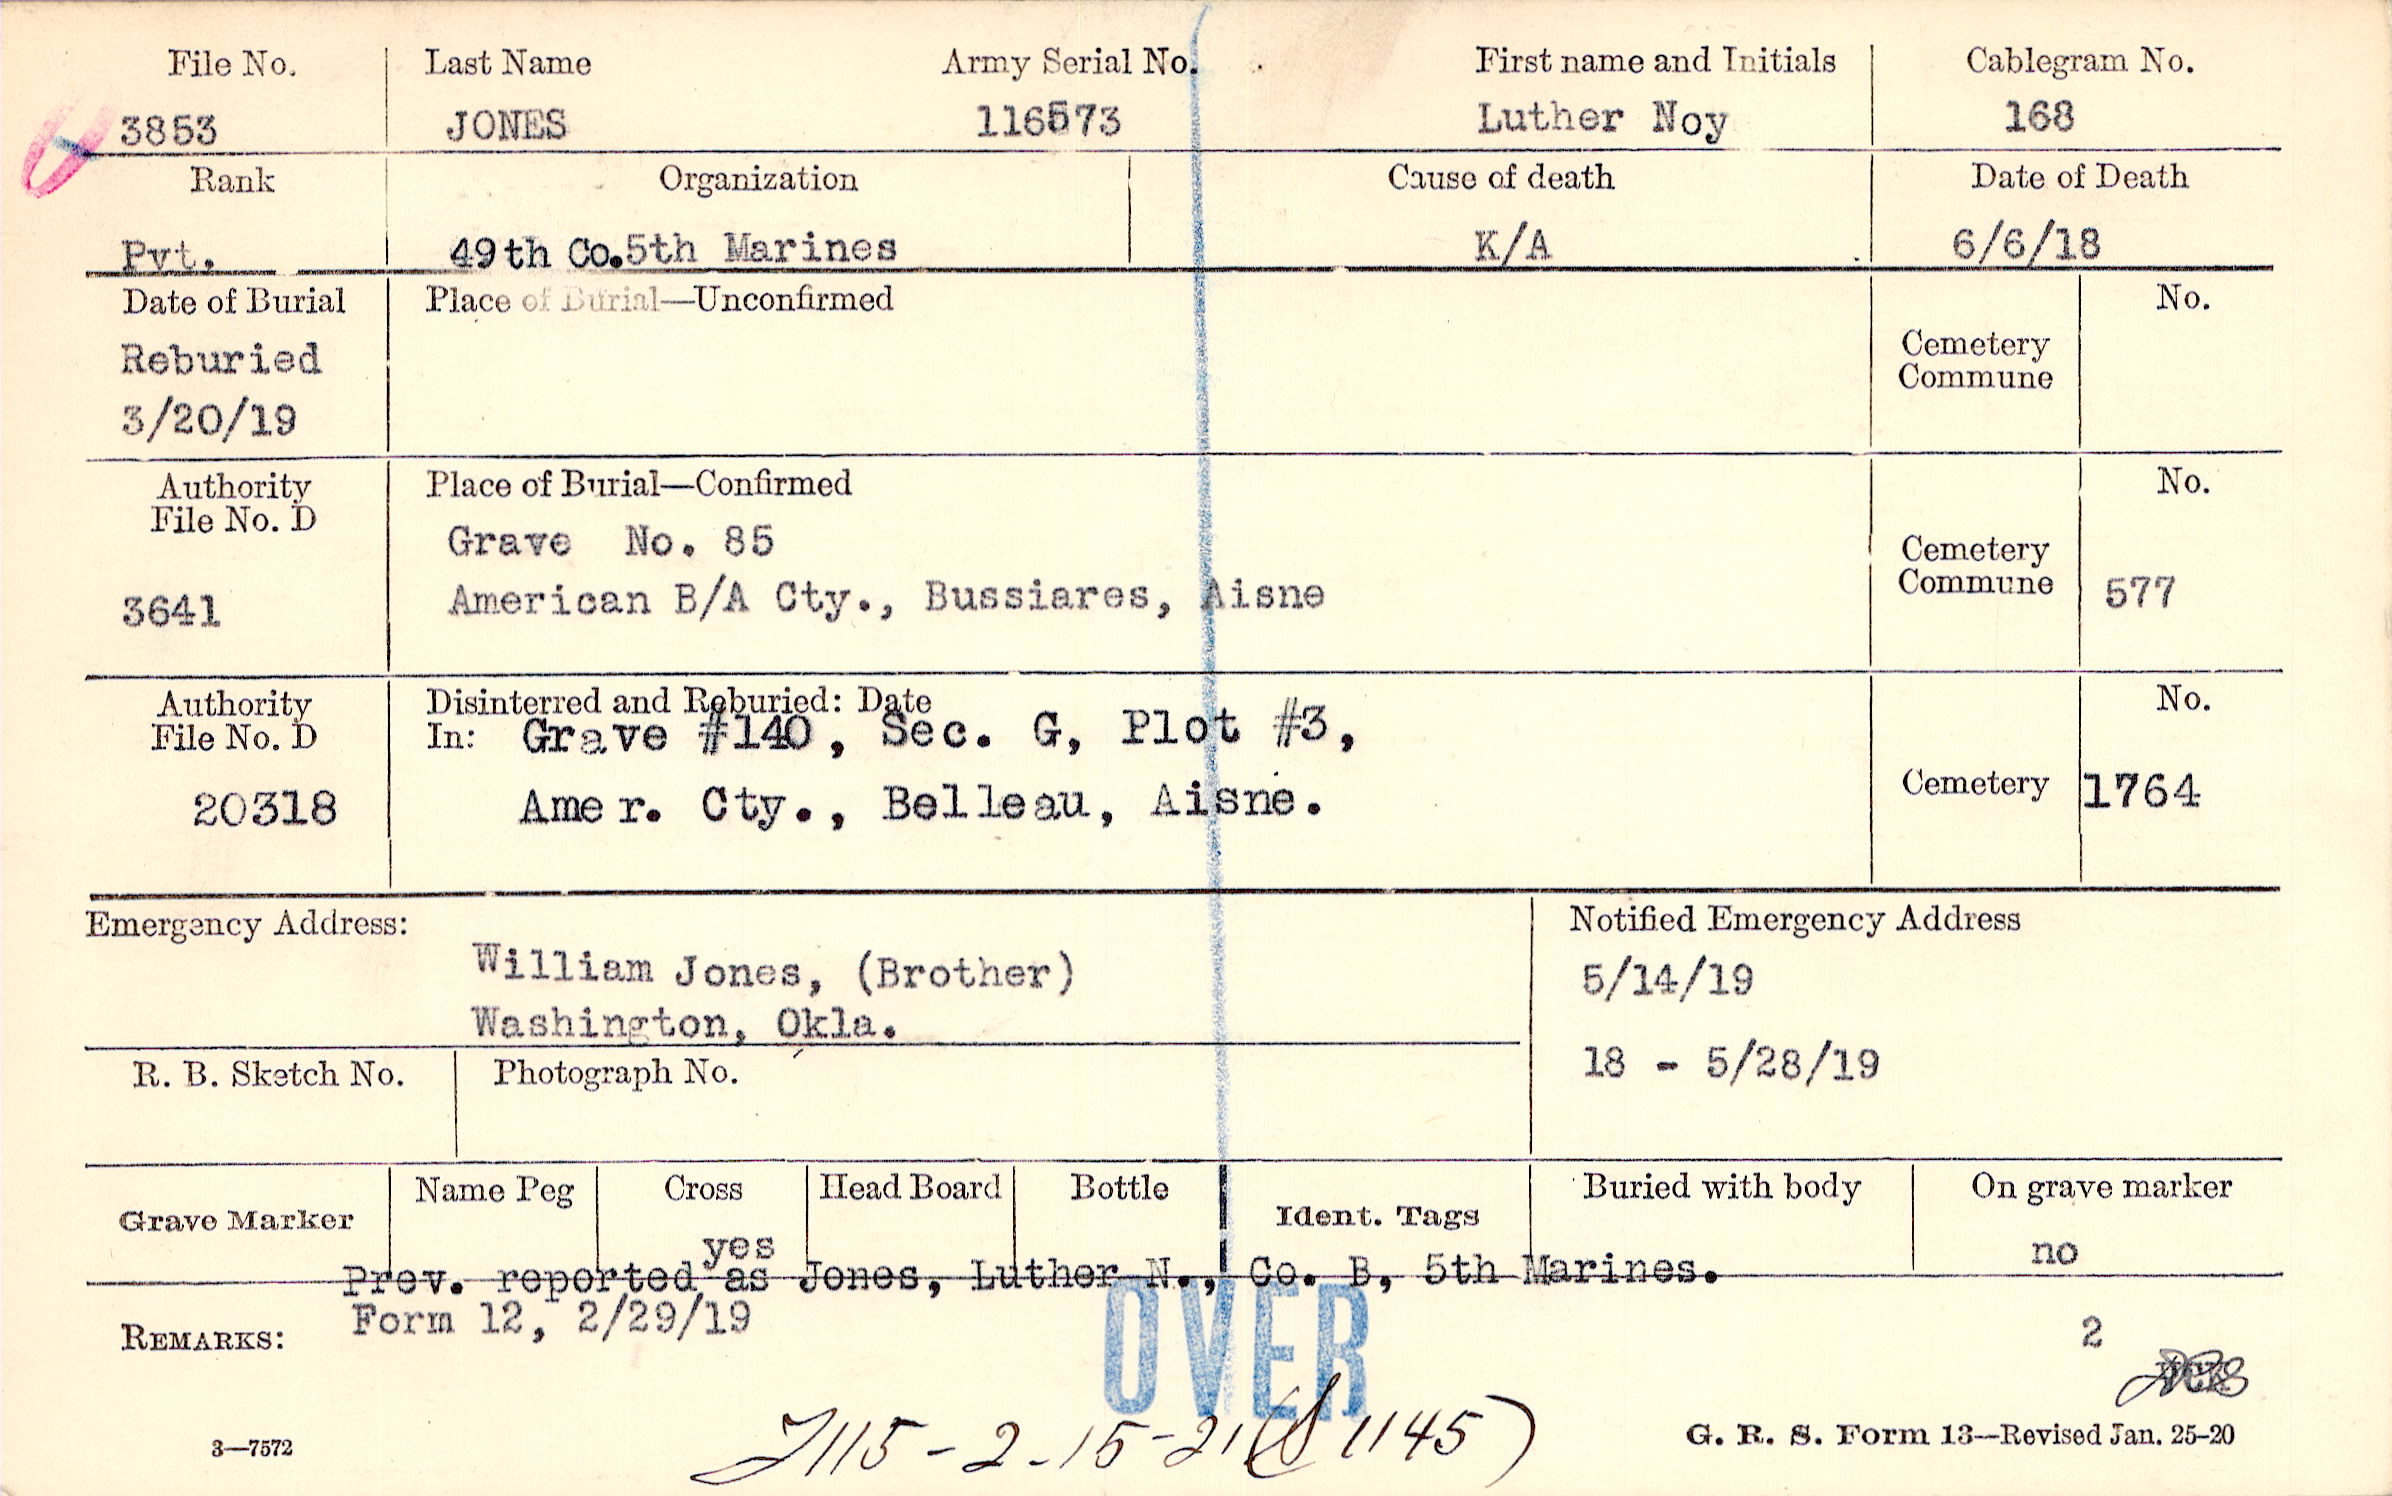 File No. Last Name Army Serial No. First name and Initials Cablegram No.
3853 JONES 116573 Luther Noy 168
Rank Organization Cause of death Date of Death
Pvt. 49th Co.5th Marines K/A 6/6/18
Date of Burial Place of Burial—Unconfirmed No.
Reburied
Cemetery
Commune
3/20/19
Authority Place of Burial—Confirmed No.
File No. D
Grave No. 85
Cemetery
Commune 577
3641 American B/A Cty., Bussiares, Aisne
Authority Disinterred and Reburied: Date No.
File No. D In: Grave #140, Sec. G, Plot #3,
20318 Amer. Cty., Belleau, Aisne. Cemetery 1764
Emergency Address: Notified Emergency Address
William Jones, (Brother) 5/14/19
Washington, Okla.
18 - 5/28/19
R. B. Sketch No. Photograph No.
Name Peg Cross Head Board Bottle Buried with body On grave marker
Grave Marker Ident. Tags
yes no
Prev. reported as Jones, Luther N., Co. B, 5th Marines.
REMARKS: Form 12, 2/29/19
2
OVER
115-2-15-21 1145)
3—7572 G. R. S. Form 13—Revised Jan. 25-20